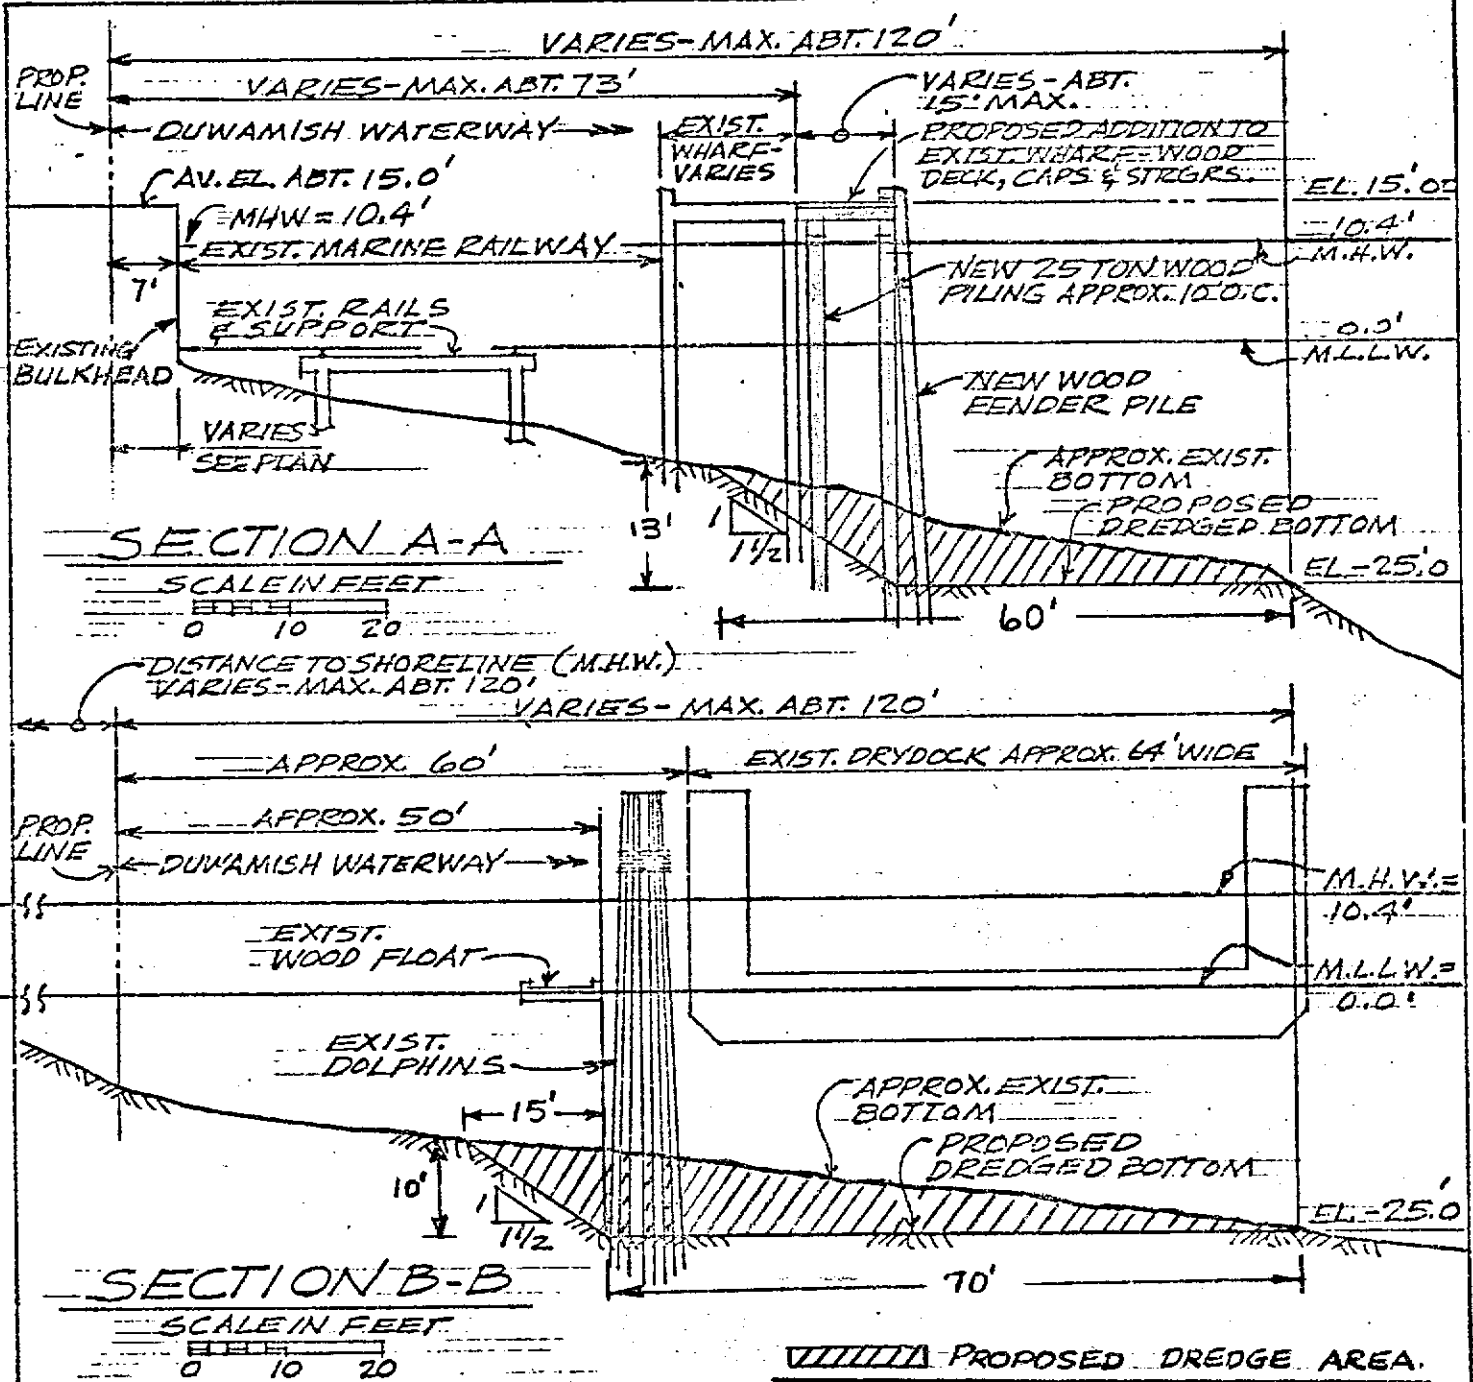 VARIES-MAX. ABT. 120'
PROP.
LINE
VARIES-MAX. ABT. 73'
VARIES-ABT.
15' MAX.
DUWAMISH WATERWAY
EXIST.
WHARF-
VARIES
PROPOSED ADDITION TO
EXIST. WHARF-WOOD
DECK, CAPS & STRGRS.
AV. EL. ABT. 15.0'
EL. 15.'0±
MHW = 10.4'
10.4'
M.H.W.
EXIST. MARINE RAILWAY
7'
NEW 25 TON WOOD
PILING APPROX. 10' O.C.
EXIST. RAILS
& SUPPORT
0.0'
M.L.L.W.
EXISTING
BULKHEAD
NEW WOOD
FENDER PILE
VARIES
SEE PLAN
APPROX. EXIST.
BOTTOM
PROPOSED
DREDGED BOTTOM
13'
1
1 1/2
SECTION A-A
EL.-25.'0
SCALE IN FEET
0 10 20
60'
DISTANCE TO SHORELINE (M.H.W.)
VARIES-MAX. ABT. 120'
VARIES-MAX. ABT. 120'
APPROX. 60'
EXIST. DRYDOCK APPROX. 64' WIDE
PROP.
LINE
APPROX. 50'
DUWAMISH WATERWAY
M.H.W.=
10.4'
EXIST.
WOOD FLOAT
M.L.L.W.=
0.0'
EXIST.
DOLPHINS
15'
APPROX. EXIST.
BOTTOM
PROPOSED
DREDGED BOTTOM
10'
1
1 1/2
EL.-25.'0
SECTION B-B
70'
SCALE IN FEET
0 10 20
PROPOSED DREDGE AREA.